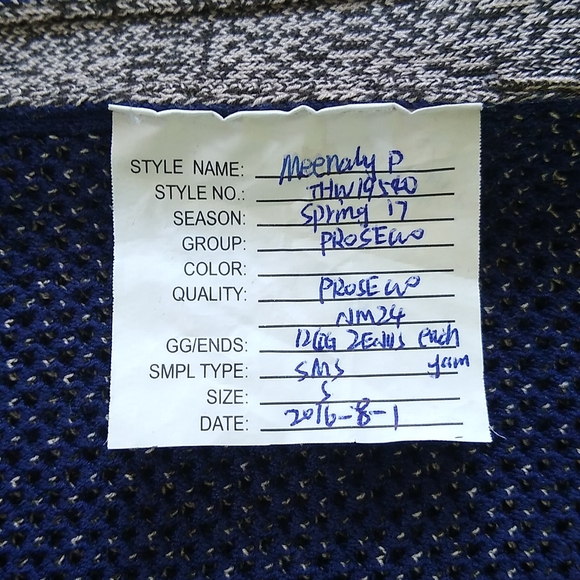 STYLE NAME: Meenaly P
STYLE NO.: THW19540
SEASON: Spring 17
GROUP: PROSEWO
COLOR:
QUALITY: PROSEWO
NM24
GG/ENDS: 12GG 2ENDS each
SMPL TYPE: SMS yarn
SIZE: S
DATE: 2016-8-1